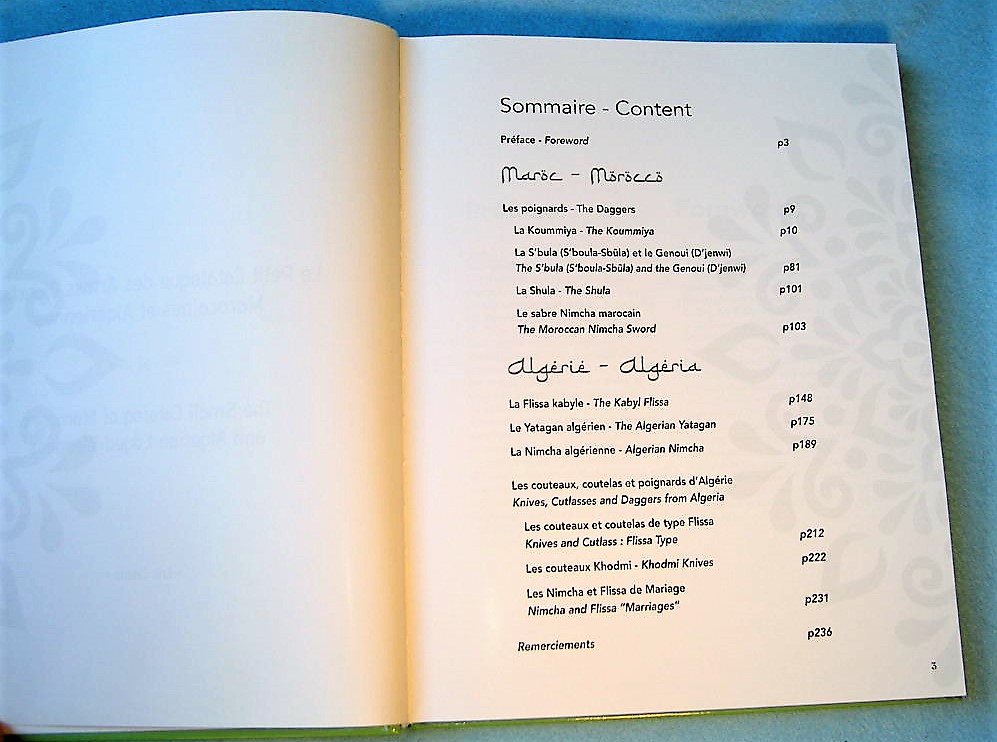 Sommaire - Content
Préface - Foreword p3
Maröc - Möröccö
Les poignards - The Daggers p9
La Koummiya - The Koummiya p10
La S'bula (S'boula-Sbûla) et le Genoui (D'jenwi)
The S'bula (S'boula-Sbûla) and the Genoui (D'jenwi) p81
La Shula - The Shula p101
Le sabre Nimcha marocain
The Moroccan Nimcha Sword p103
Algérié - Algéria
La Flissa kabyle - The Kabyl Flissa p148
Le Yatagan algérien - The Algerian Yatagan p175
La Nimcha algérienne - Algerian Nimcha p189
Les couteaux, coutelas et poignards d'Algérie
Knives, Cutlasses and Daggers from Algeria
Les couteaux et coutelas de type Flissa
Knives and Cutlass : Flissa Type p212
Les couteaux Khodmi - Khodmi Knives p222
Les Nimcha et Flissa de Mariage
Nimcha and Flissa "Marriages" p231
Remerciements p236
3